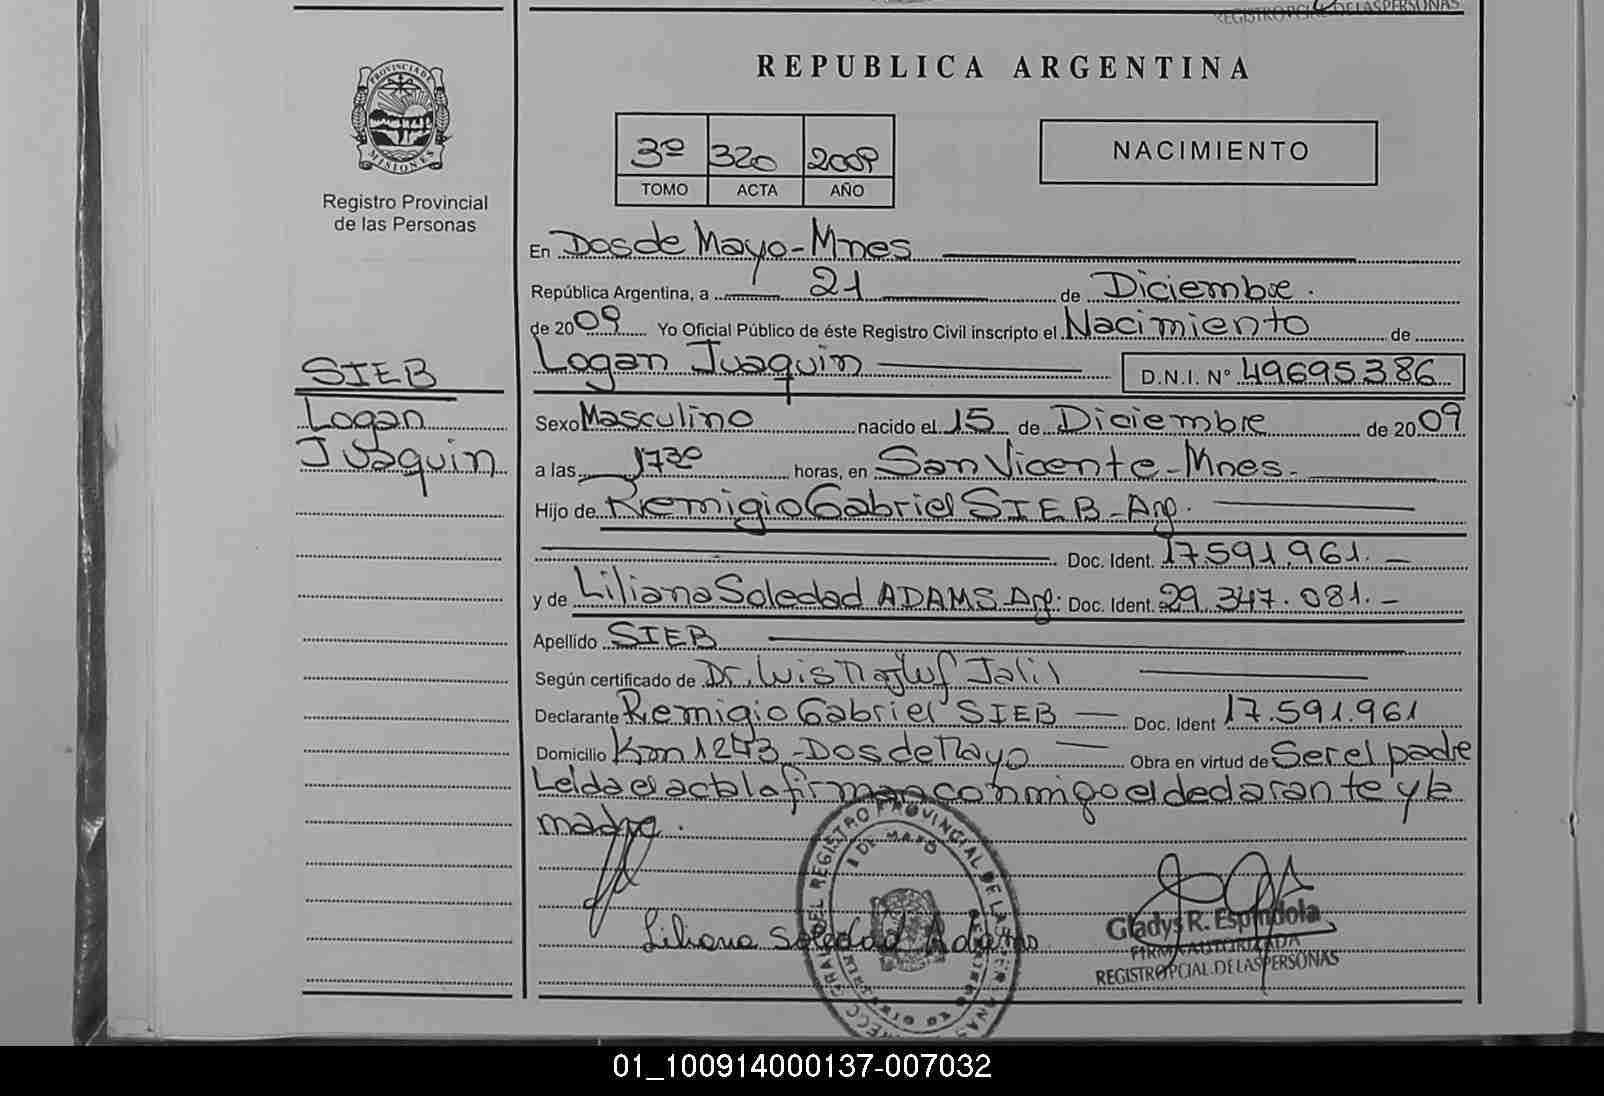 REGISTRO PCIAL. DE LAS PERSONAS
PROVINCIA DE
MISIONES
Registro Provincial
de las Personas
SIEB
Logan
Juaquin
REPUBLICA ARGENTINA
3º 320 2009
TOMO ACTA AÑO
NACIMIENTO
En Dos de Mayo - Mnes
República Argentina, a 21 de Diciembre.
de 2009 Yo Oficial Público de éste Registro Civil inscripto el Nacimiento de
Logan Juaquin D.N.I. N° 49695386
Sexo Masculino nacido el 15 de Diciembre de 2009
a las 1730 horas, en San Vicente - Mnes.
Hijo de Remigio Gabriel SIEB - Arg.
Doc. Ident. 17.591.961.-
y de Liliana Soledad ADAMS Arg: Doc. Ident. 29.347.081.-
Apellido SIEB
Según certificado de Dr. Luis Najluf Jalil
Declarante Remigio Gabriel SIEB - Doc. Ident 17.591.961
Domicilio Km 1273 - Dos de Mayo - Obra en virtud de Ser el padre
Leida el acta la firman conmigo el declarante y la
madre.
Liliana Soledad Adams
REGISTRO PROVINCIAL DE LAS
DE MAYO
Gladys R. Espindola
FIRMA AUTORIZADA
REGISTRO PCIAL. DE LAS PERSONAS
01_100914000137-007032